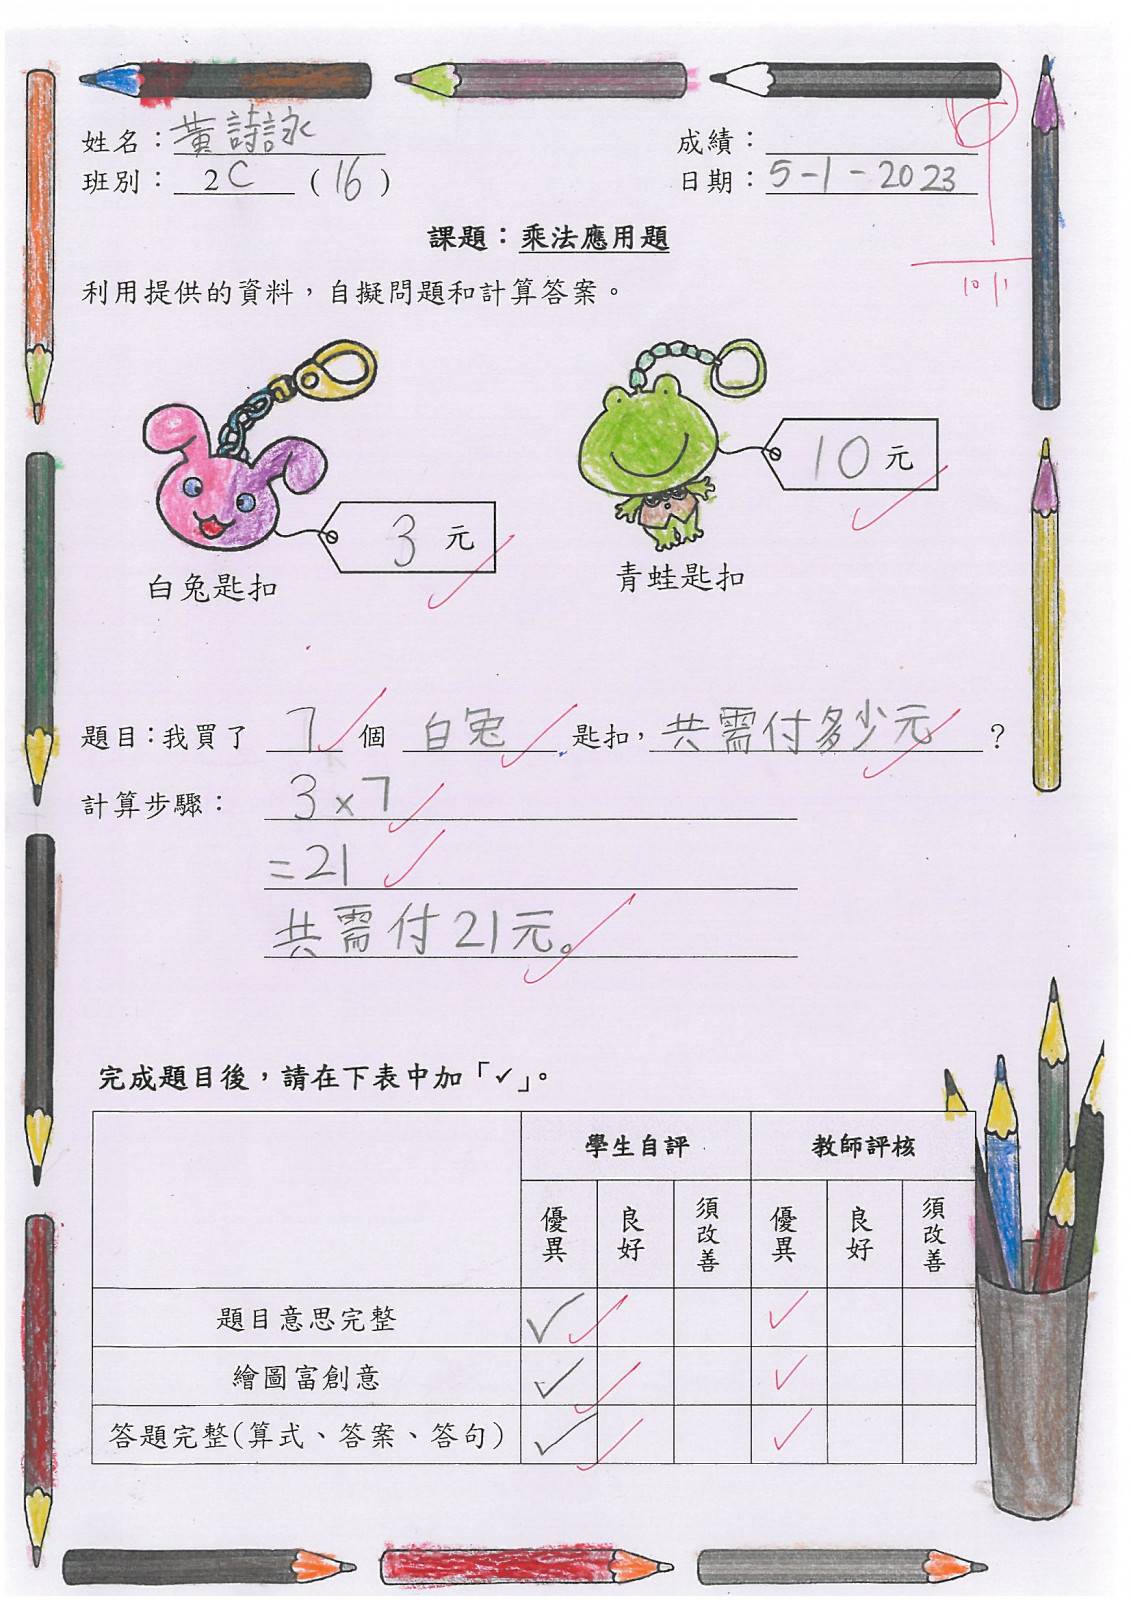 姓名：黃詩詠
成績：
班別：2C（16）
日期：5-1-2023
課題：乘法應用題
10/1
利用提供的資料，自擬問題和計算答案。
10元
3元
白兔匙扣
青蛙匙扣
題目：我買了7個白兔匙扣，共需付多少元？
計算步驟：3×7
=21
共需付21元。
完成題目後，請在下表中加「✓」。
學生自評 教師評核
優異 良好 須改善 優異 良好 須改善
題目意思完整 ✓ ✓
繪圖富創意 ✓ ✓
答題完整(算式、答案、答句) ✓ ✓